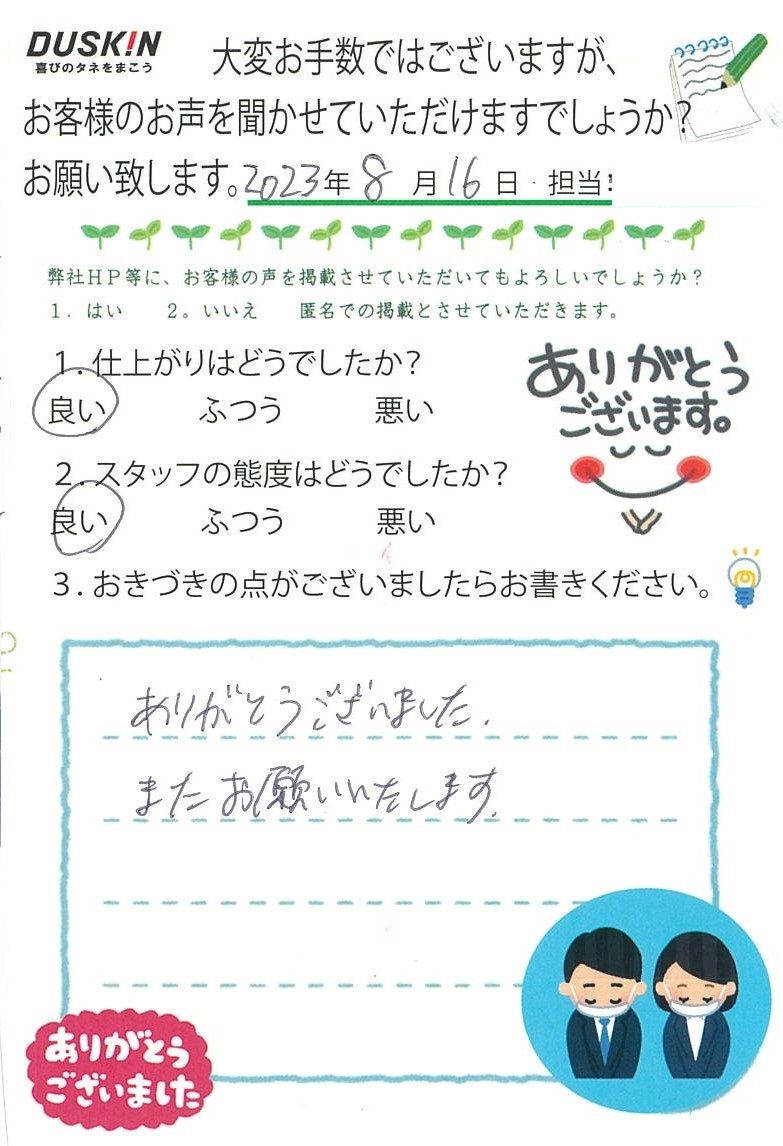 DUSK!N
喜びのタネをまこう
大変お手数ではございますが、
お客様のお声を聞かせていただけますでしょうか?
お願い致します。2023年 8 月 16 日・担当:
弊社HP等に、お客様の声を掲載させていただいてもよろしいでしょうか?
1. はい 2。いいえ 匿名での掲載とさせていただきます。
1. 仕上がりはどうでしたか?
良い ふつう 悪い
ありがとう
ございます。
2. スタッフの態度はどうでしたか?
良い ふつう 悪い
3. おきづきの点がございましたらお書きください。
ありがとうございました.
またお願いいたします.
ありがとう
ございました